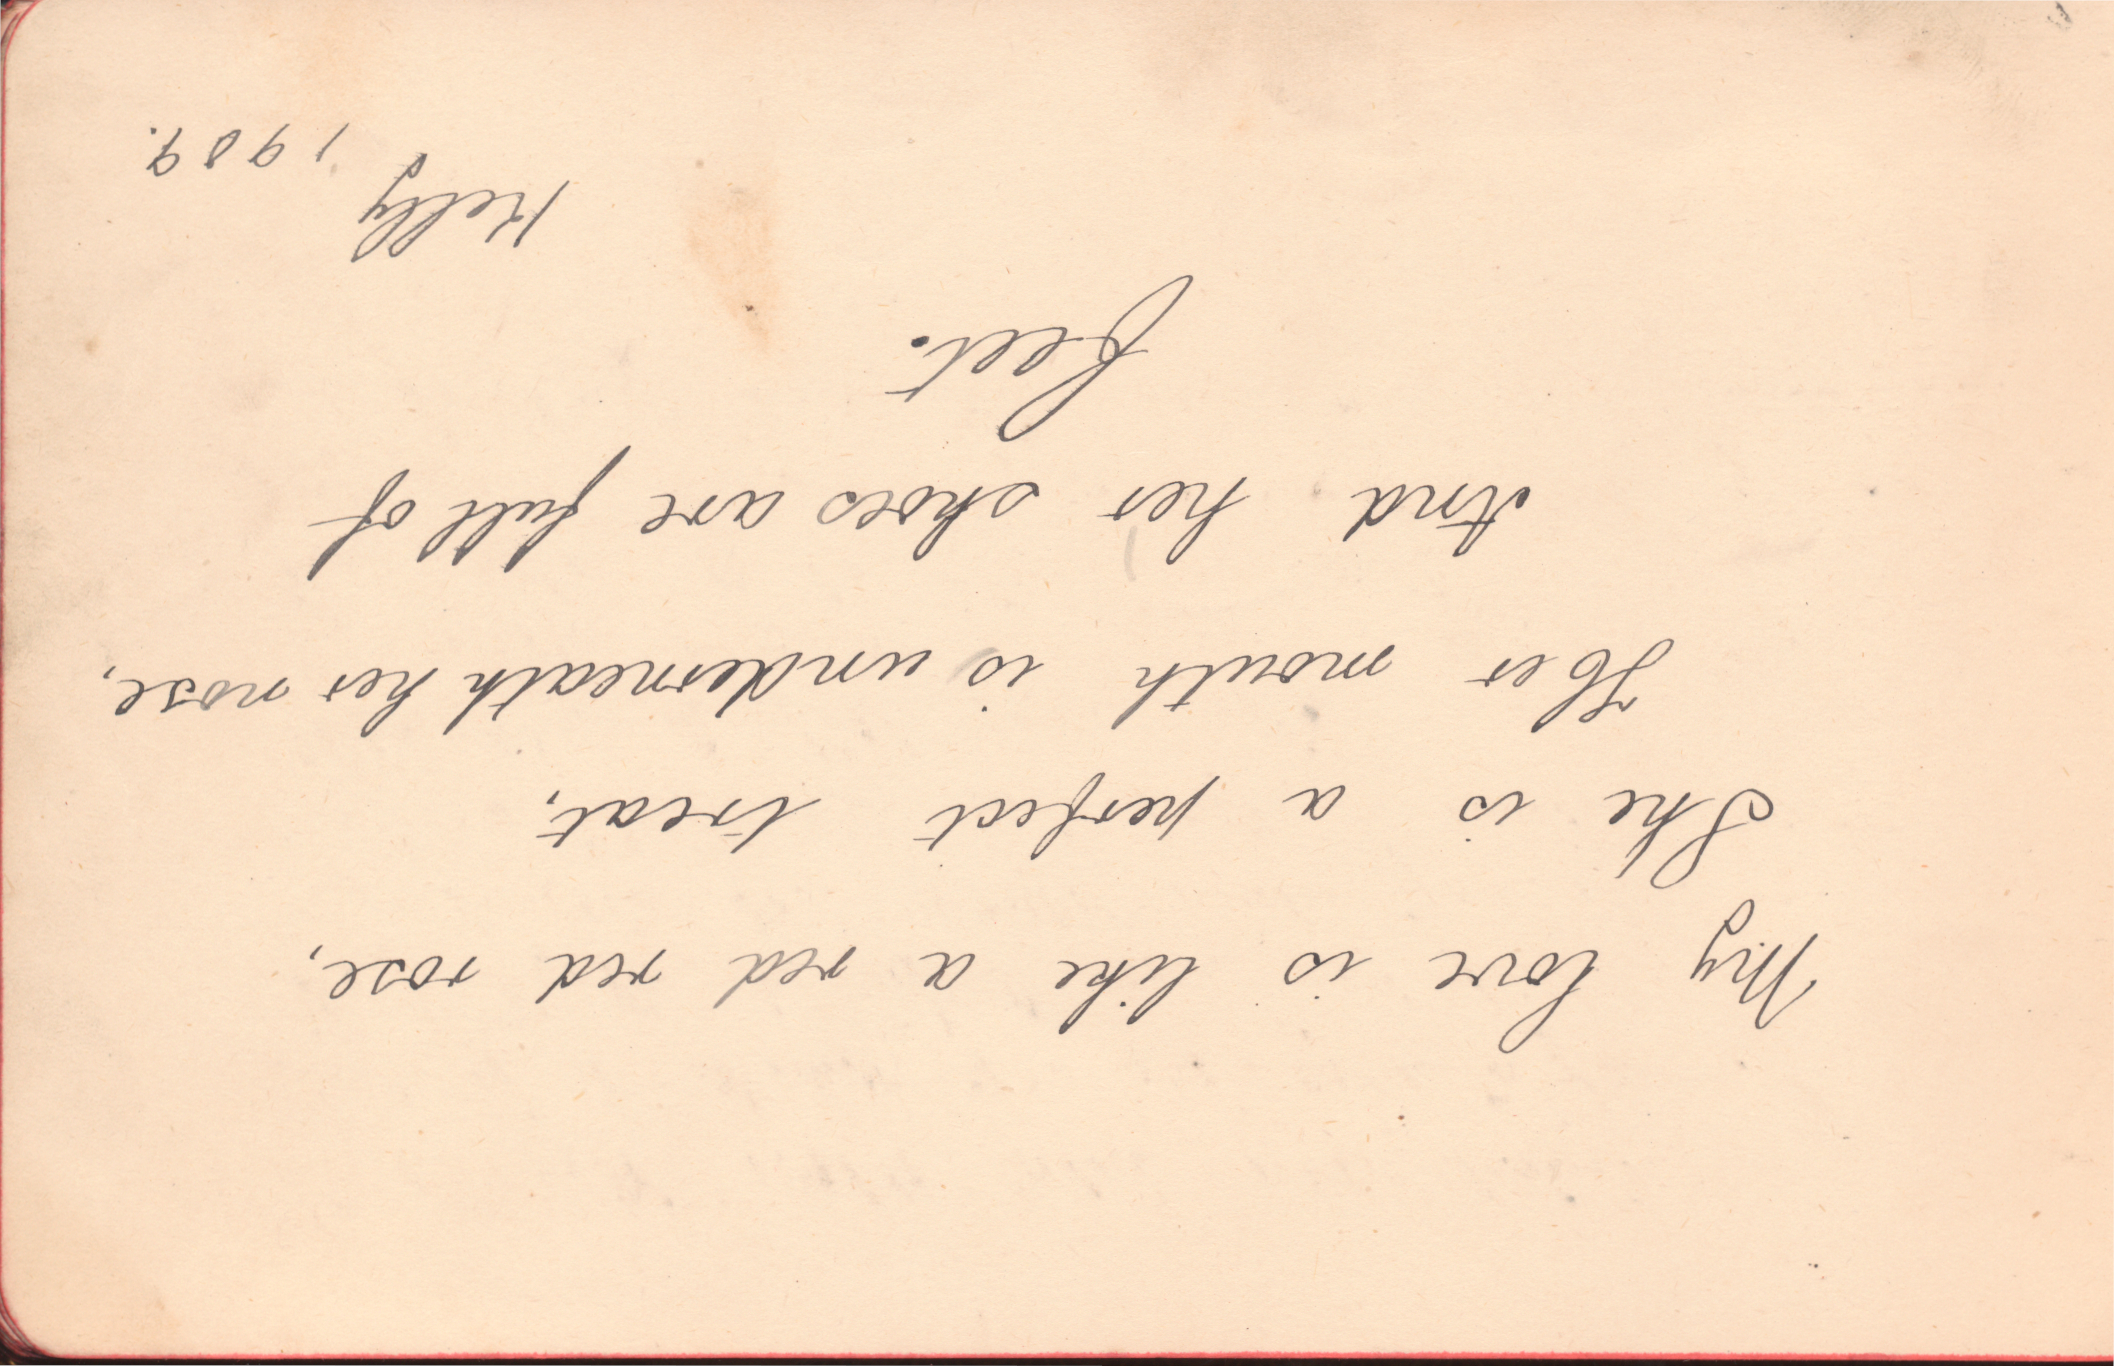 My love is like a red red rose,
She is a perfect treat,
Her mouth is underneath her nose,
And her shoes are full of
feet.
Kelly
1909.